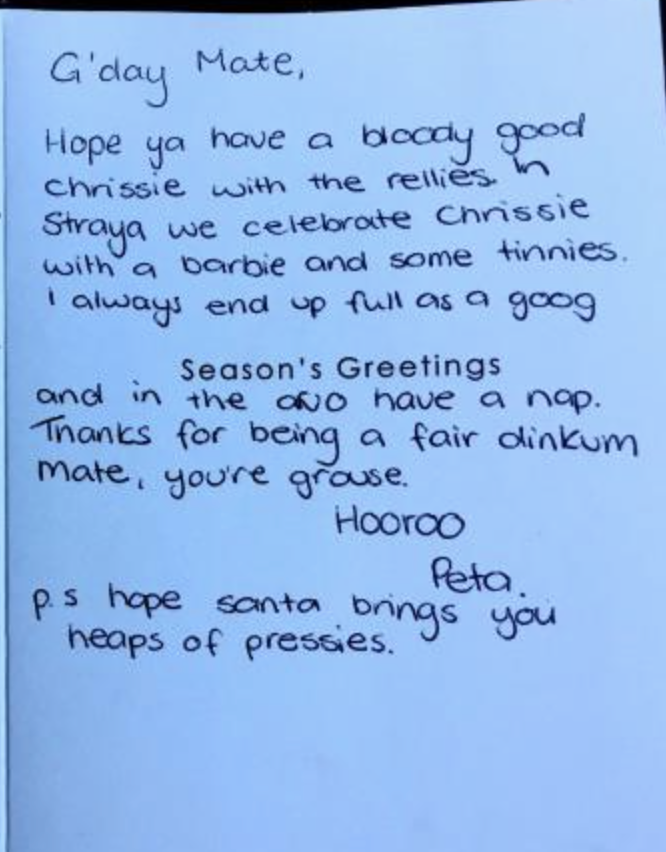 G'day Mate,
Hope ya have a bloody good
chrissie with the rellies. In
Straya we celebrate Chrissie
with a barbie and some tinnies.
I always end up full as a goog
Season's Greetings
and in the avo have a nap.
Thanks for being a fair dinkum
mate, you're grouse.
Hooroo
Peta.
p.s hope santa brings you
heaps of pressies.